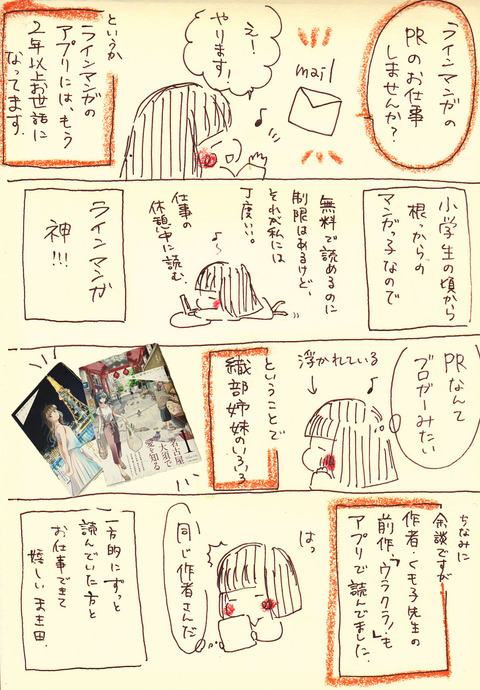 ラインマンガの
PRのお仕事
しませんか?
mail
え!
やります!
というか
ラインマンガの
アプリには、もう
2年以上お世話に
なってます。
小学生の頃から
根っからの
マンガっ子なので
無料で読めるのに
制限はあるけど、
それが私には
丁度いい。
仕事の
休憩中に読む。
ラインマンガ
神!!!
PRなんて
ブロガーみたい
浮かれている
ということで
織部姉妹のいろいろ
名古屋
大須で
愛を知る
1
ちなみに
余談ですが
作者・くも子先生の
前作、「ウラクラ!」も
アプリで読んでました。
はっ
同じ作者さんだ
一方的にずっと
読んでいた方と
お仕事できて
嬉しいま生田。